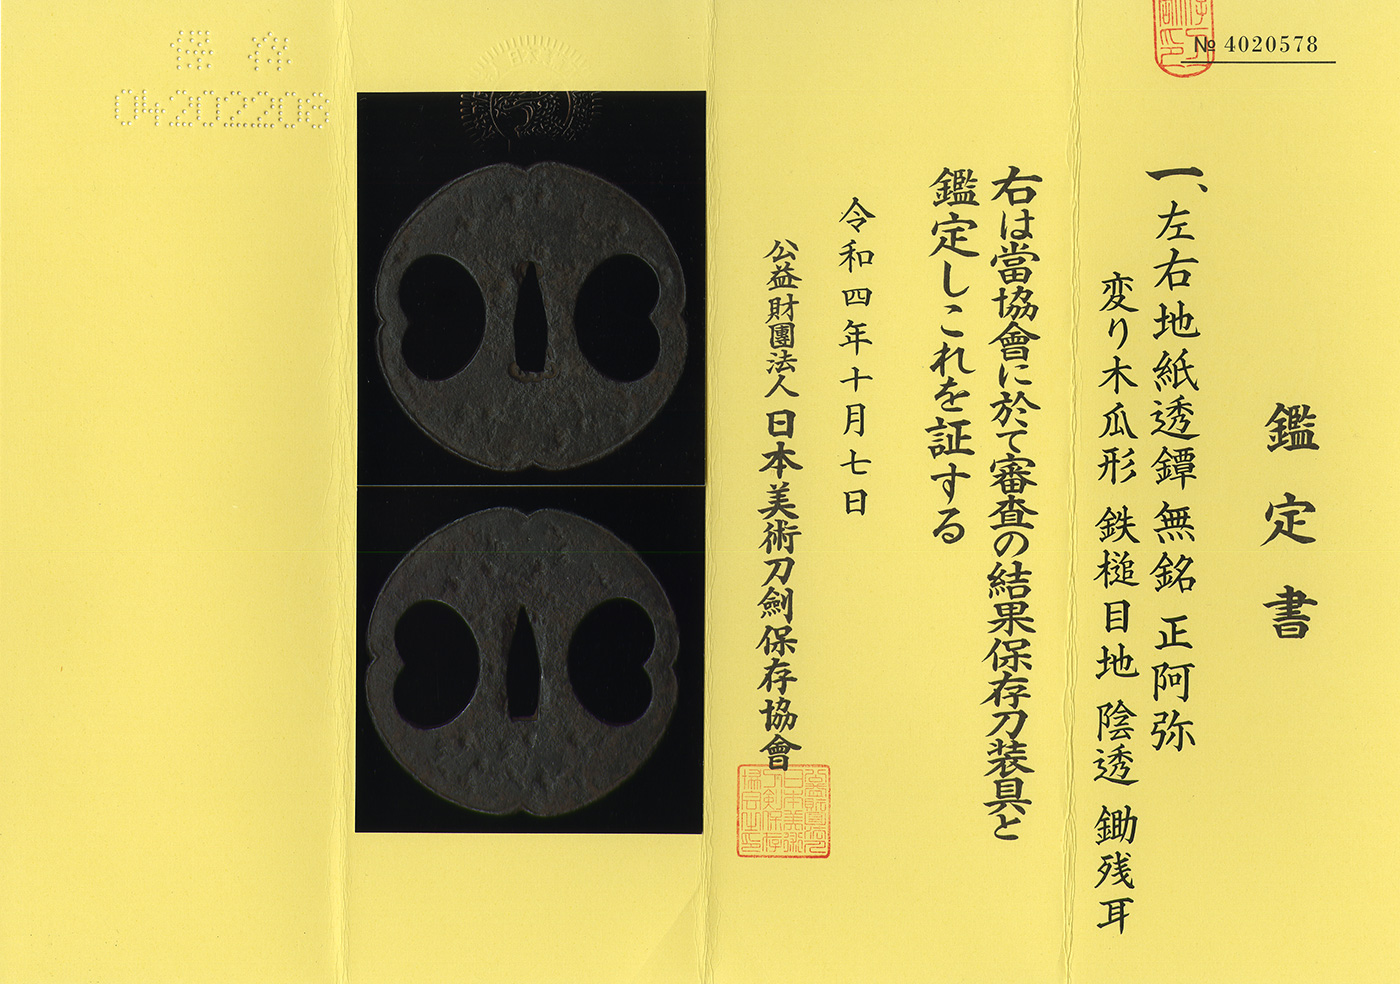 № 4020578
鑑定書
一、左右地紙透鐔 無銘 正阿弥
変り木瓜形 鉄槌目地 陰透 鋤残耳
右は當協會に於て審査の結果保存刀装具と
鑑定しこれを証する
令和四年十月七日
公益財團法人 日本美術刀劍保存協會
保存
04202208